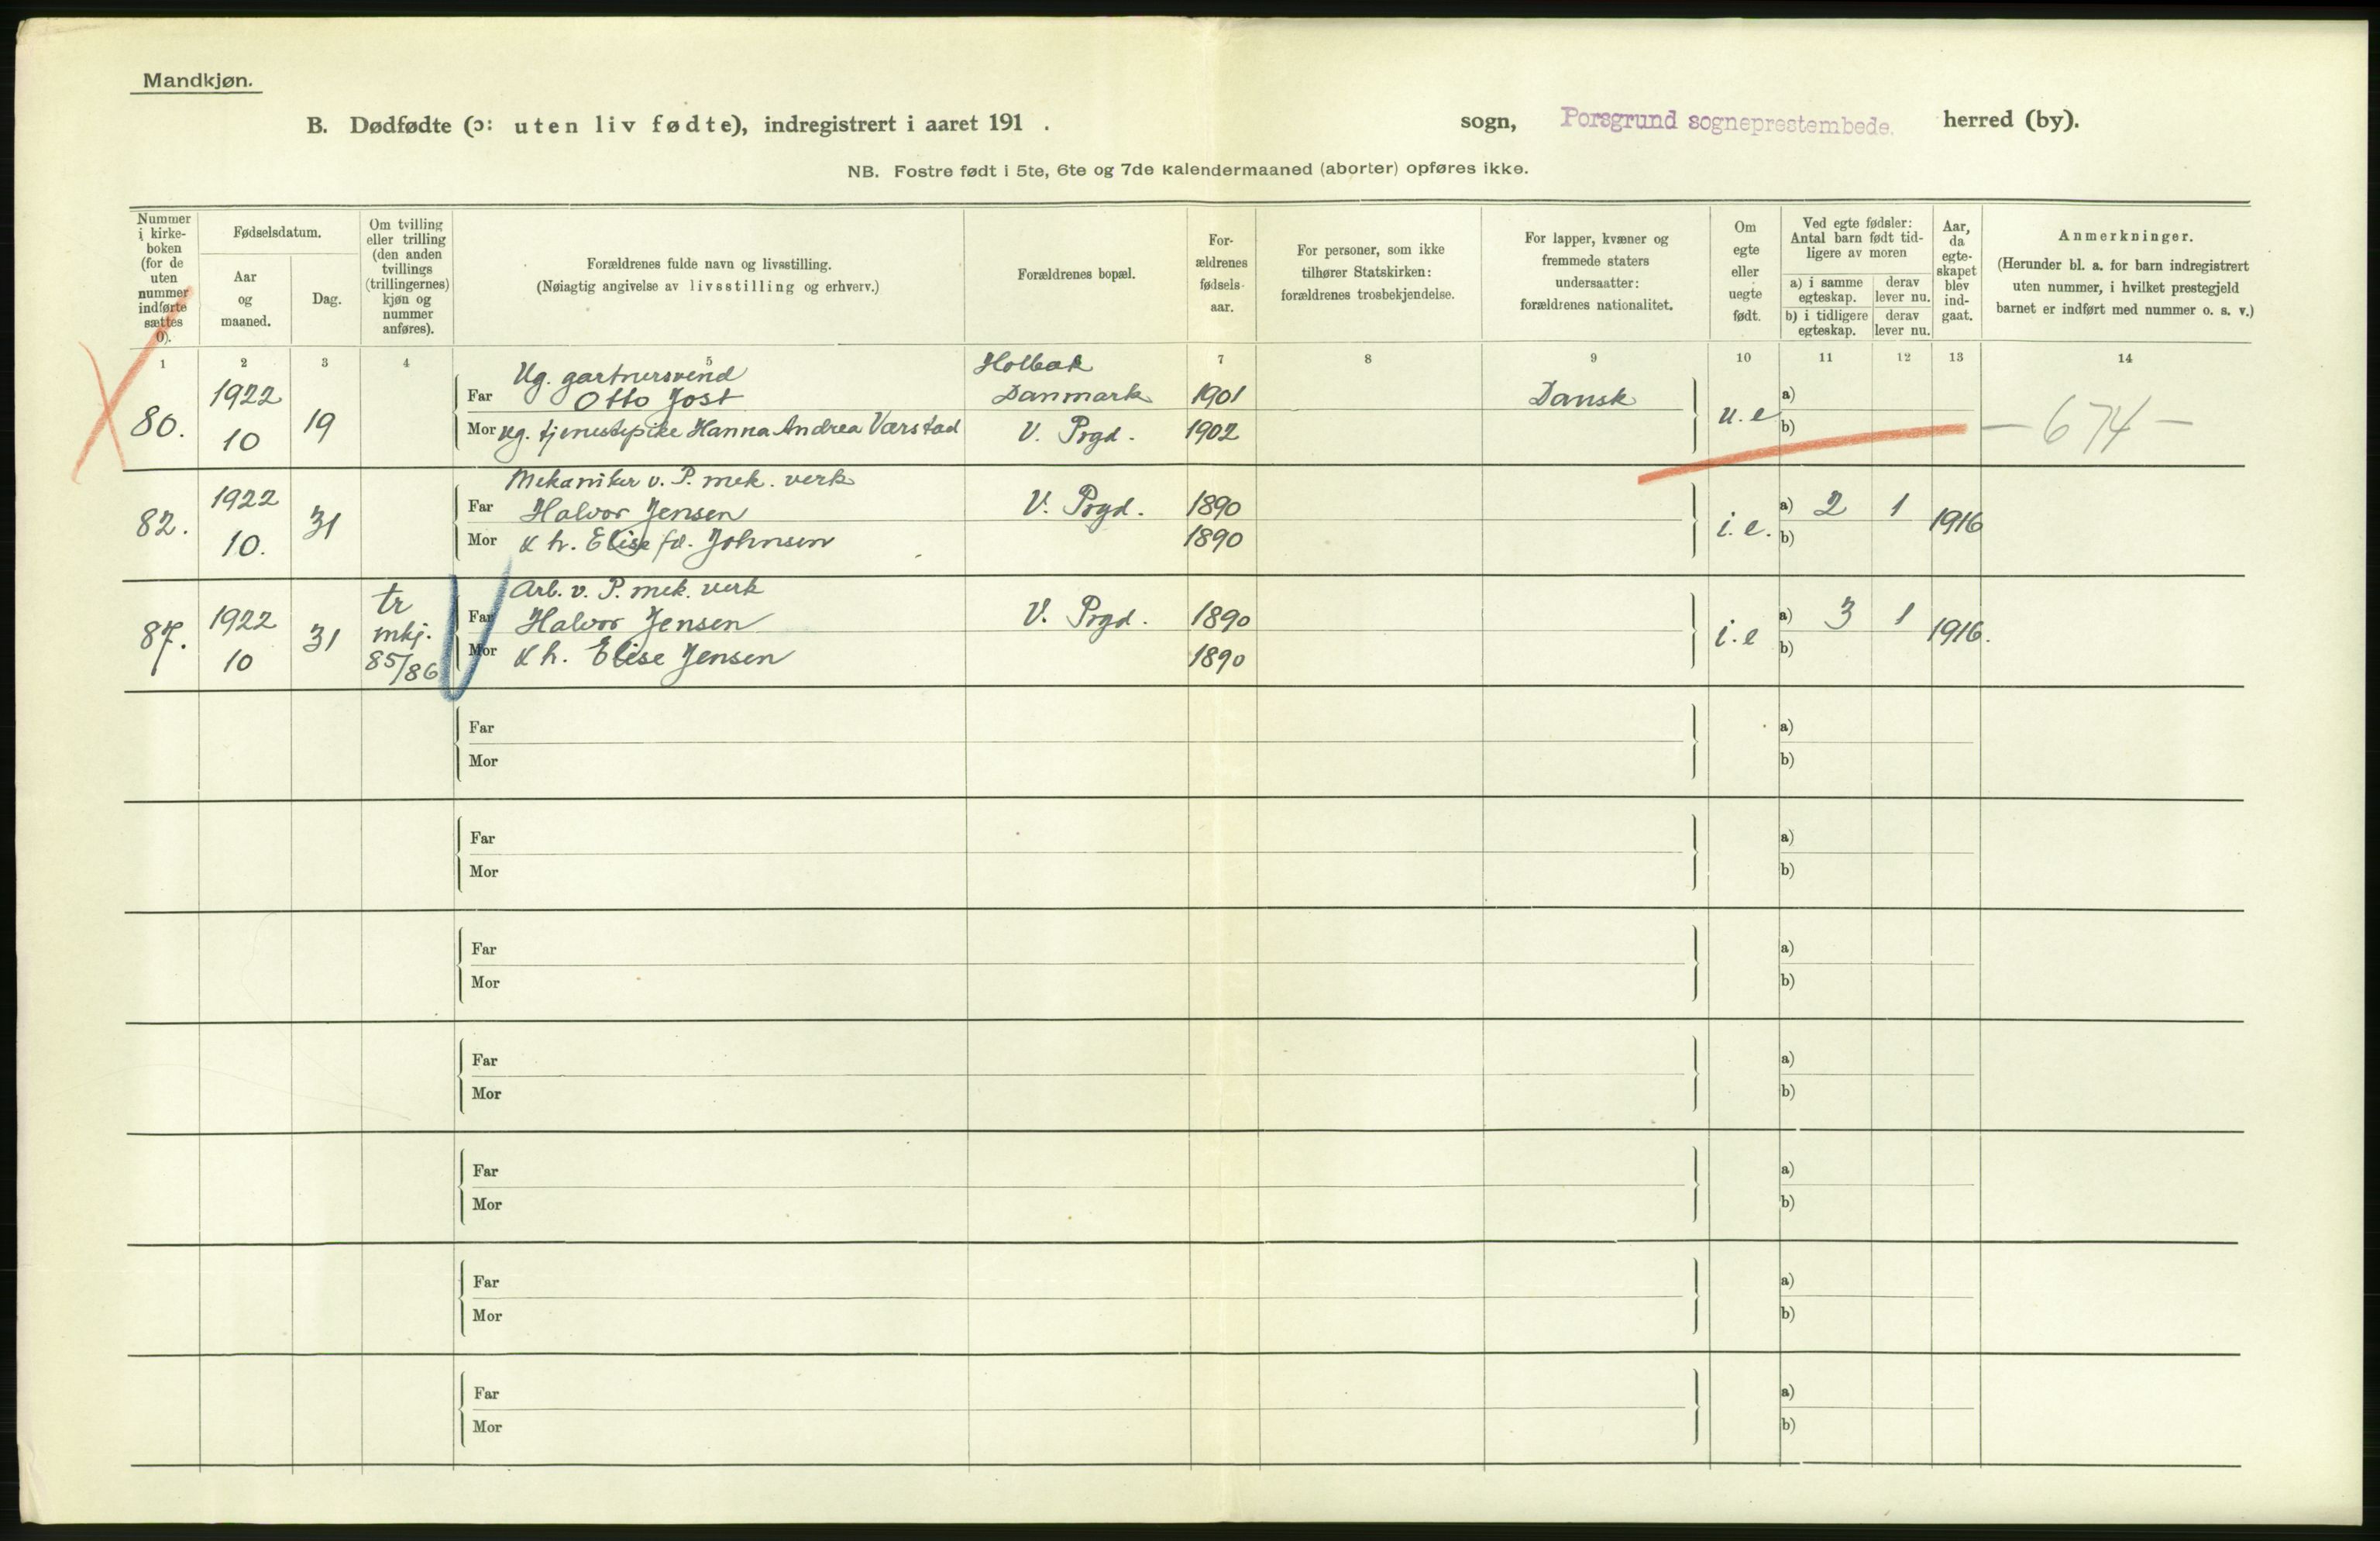 Mandkjøn.
B. Dødfødte (ɔ: uten liv fødte), indregistrert i aaret 191 . sogn, Porsgrund sogneprestembede. herred (by).
NB. Fostre født i 5te, 6te og 7de kalendermaaned (aborter) opføres ikke.
Nummer i kirke-boken (for de uten nummer indførte sættes 0).
Fødselsdatum.
Aar og maaned.
Dag.
Om tvilling eller trilling (den anden tvillings (trillingernes) kjøn og nummer anføres).
Forældrenes fulde navn og livsstilling.
(Nøiagtig angivelse av livsstilling og erhverv.)
Forældrenes bopæl.
For-ældrenes fødsels-aar.
For personer, som ikke tilhører Statskirken: forældrenes trosbekjendelse.
For lapper, kvæner og fremmede staters undersaatter: forældrenes nationalitet.
Om egte eller uegte født.
Ved egte fødsler: Antal barn født tid-ligere av moren
a) i samme egteskap. derav lever nu.
b) i tidligere egteskap. derav lever nu.
Aar, da egte-skapet blev ind-gaat.
Anmerkninger.
(Herunder bl. a. for barn indregistrert uten nummer, i hvilket prestegjeld barnet er indført med nummer o. s. v.)
1 2 3 4 5 7 8 9 10 11 12 13 14
Ug. gartnersvend Holbæk
80. 1922 10 19 Far Otto Jost Danmark 1901 Dansk u. e a) b) — 674 —
Mor Ug. tjenestepike Hanna Andrea Værstad V. Prgd. 1902
Mekaniker v. P. mek. verk
82. 1922 10. 31 Far Halvor Jensen V. Prgd. 1890 i. e. a) 2 1 1916
Mor k h. Elise fd. Johnsen 1890 b)
Arb. v. P. mek. verk
87. 1922 10 31 tr mkj. 85/86 Far Halvor Jensen V. Prgd. 1890 i. e a) 3 1 1916.
Mor k h. Elise Jensen 1890 b)
Far a)
Mor b)
Far a)
Mor b)
Far a)
Mor b)
Far a)
Mor b)
Far a)
Mor b)
Far a)
Mor b)
Far a)
Mor b)